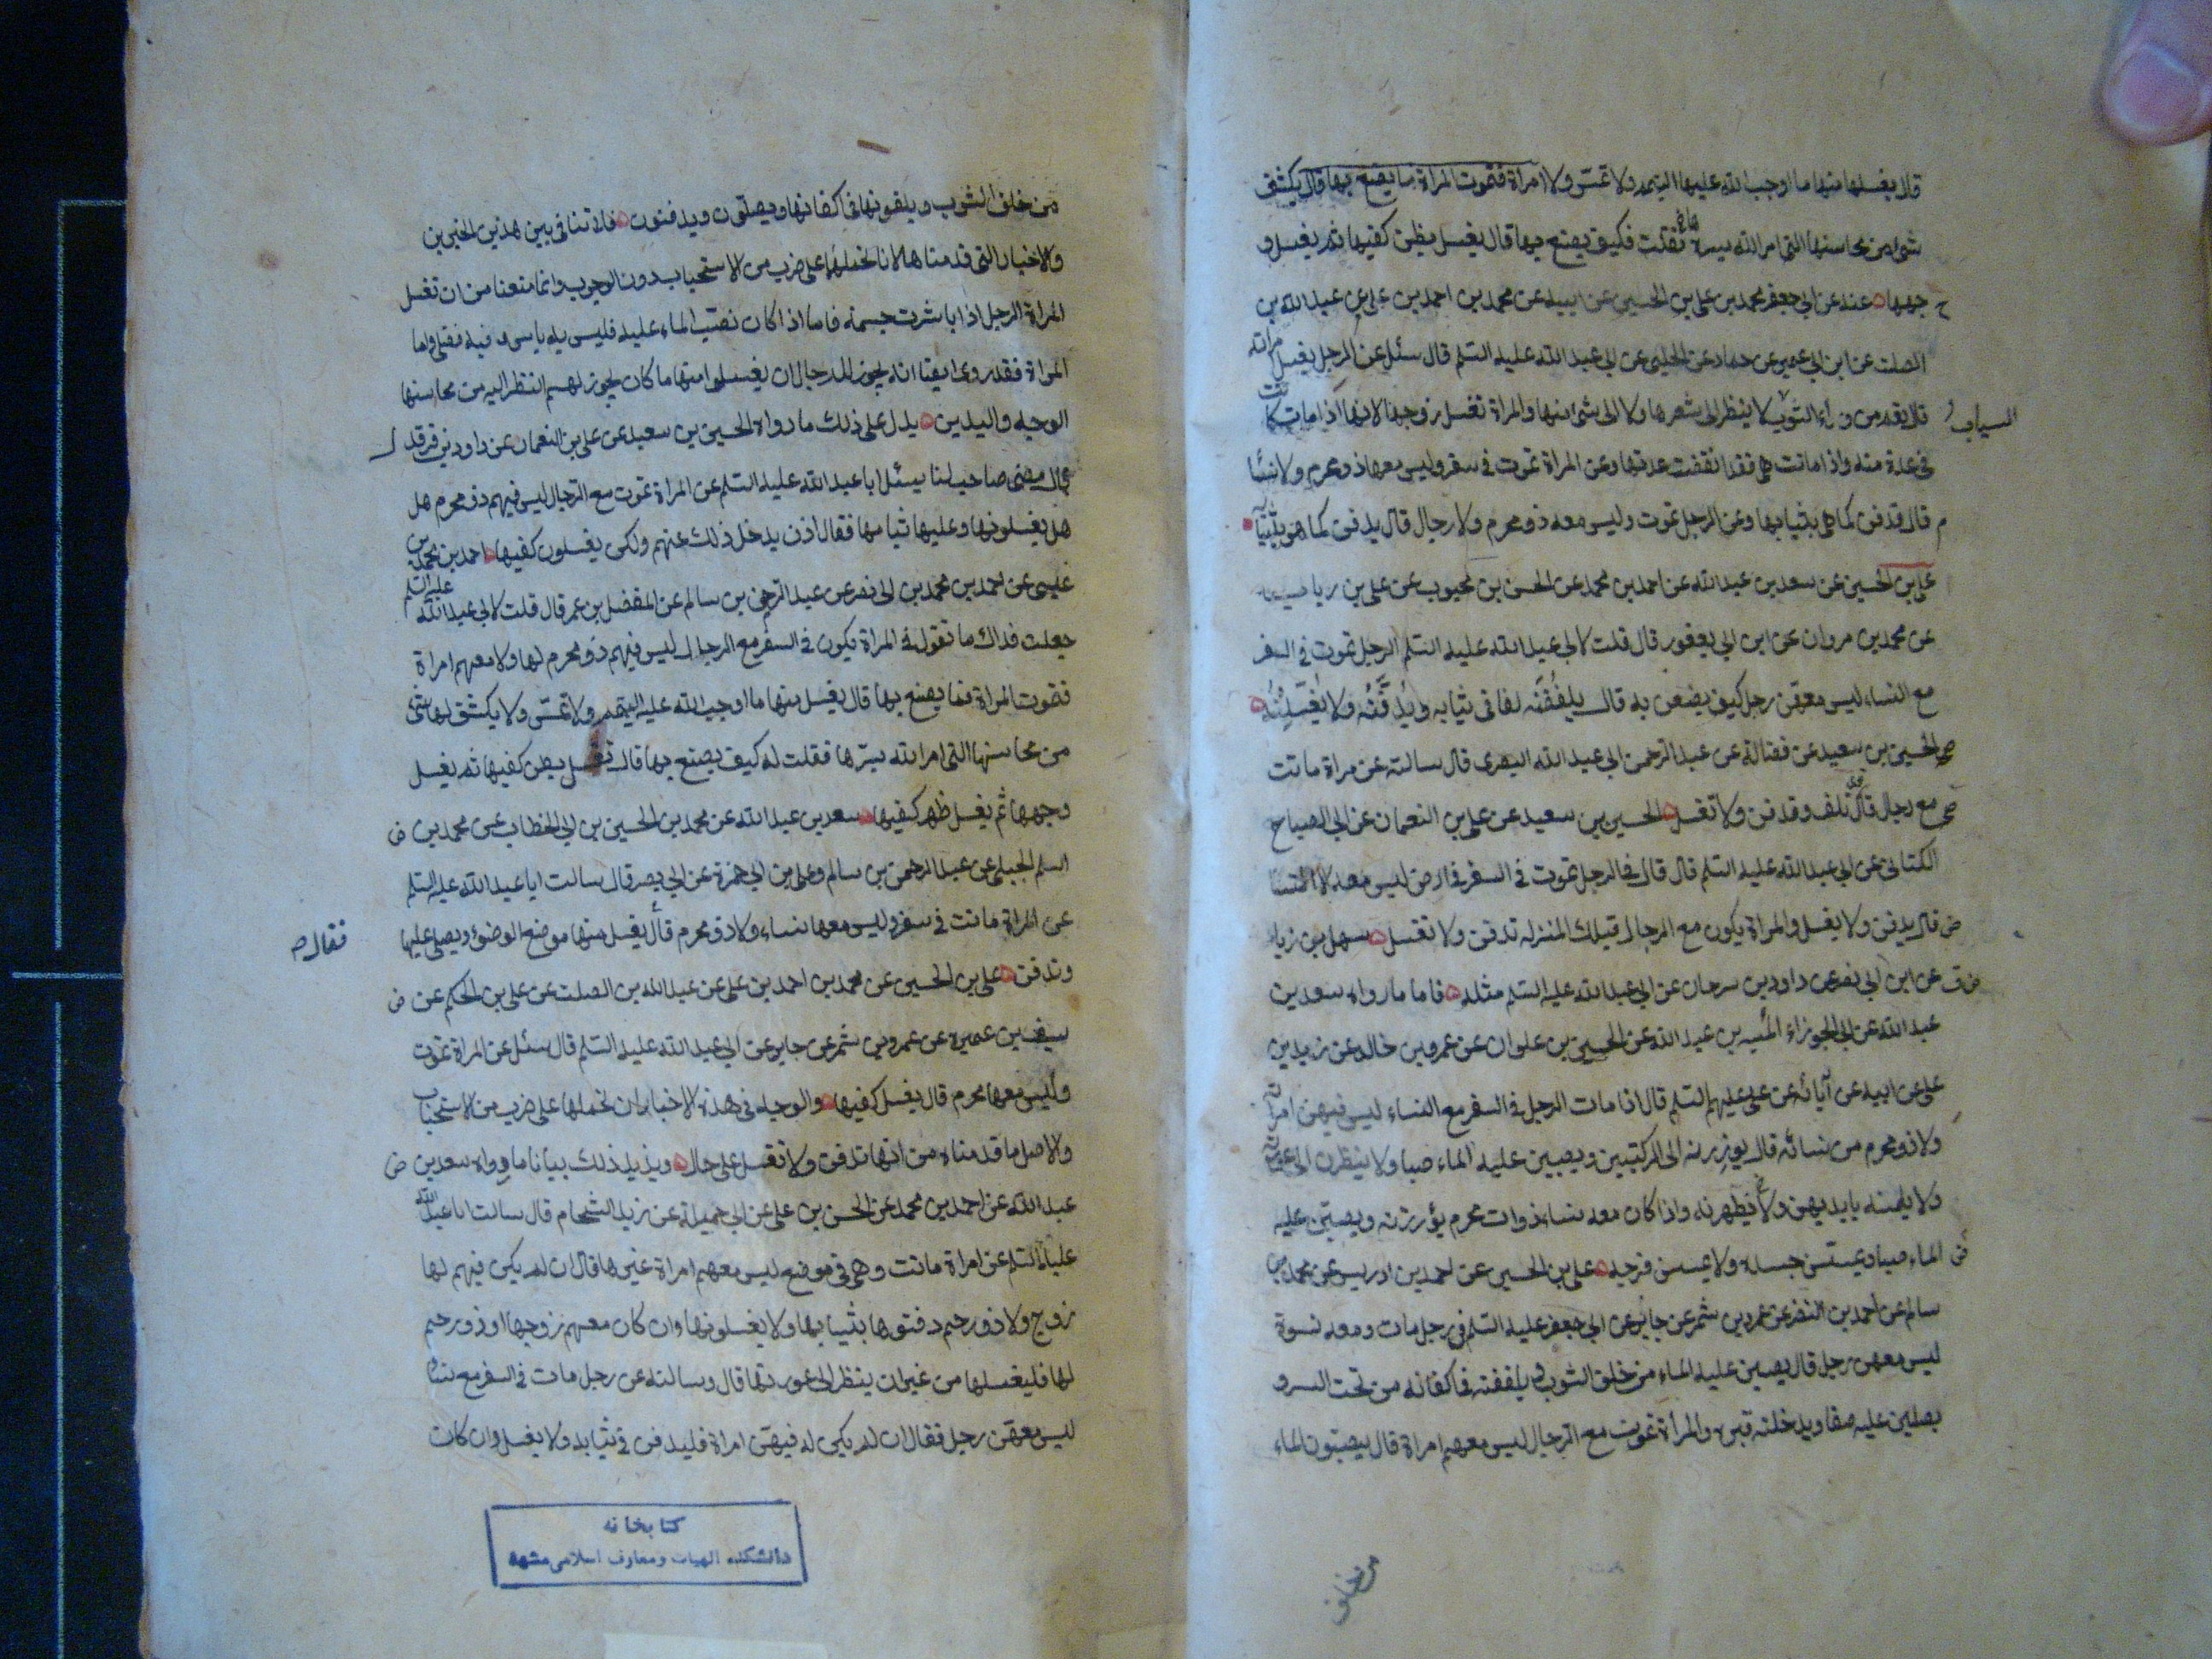 قال يغسلها منها ما اوجب الله عليها التيمم ولا تمس ولا امراة فتموت المراة ما يصنع بها قال يكشف
شئ من محاسنها التى امر الله بستره فقلت فكيف يصنع بها قال يغسل بطن كفيها ثم يغسل و
جهها عنه عن ابى جعفر محمد بن على بن الحسين عن ابيه عن محمد بن احمد بن على عن عبد الله بن
الصلت عن ابن ابى عمير عن حماد عن الحلبى عن ابى عبد الله عليه السلم قال سئل عن الرجل يغسل امراته
من وراء الثوب لا ينظر الى شعرها ولا الى شئ منها والمراة تغسل زوجها لانها اذا مات كانت
فى عدة منه واذا ماتت هى فقد انقضت عدتها وعن المراة تموت فى سفر وليس معها ذو محرم ولا نساء
قال تدفن كما هى بثيابها وعن الرجل يموت وليس معه ذو محرم ولا رجال قال يدفن كما هو بثيابه
على بن الحسين عن سعد بن عبد الله عن احمد بن محمد عن الحسن بن محبوب عن على بن رياب
عن محمد بن مروان عن ابن ابى يعفور قال قلت لابى عبد الله عليه السلم الرجل يموت فى السفر
مع النساء ليس معهن رجل كيف يصنعن به قال يلففنه لفا فى ثيابه ويدفنه ولا يغسلنه
الحسين بن سعيد عن فضالة عن عبد الرحمن ابى عبد الله البصرى قال سالته عن مراة ماتت
مع رجال قال تلف وتدفن ولا تغسل الحسين بن سعيد عن على بن النعمان عن ابى الصباح
الكنانى عن ابى عبد الله عليه السلم قال قال فى الرجل يموت فى السفر فى ارض ليس معه الا النسا
قال يدفن ولا يغسل والمراة يكون مع الرجال بتلك المنزله تدفن ولا تغسل سهل بن زياد
عن ابن ابى نصر عن داود بن سرحان عن ابى عبد الله عليه السلم مثله فاما ما رواه سعد بن
عبد الله عن ابى الجوزاء المنبه بن عبد الله عن الحسين بن علوان عن عمرو بن خالد عن زيد بن
على عن ابيه عن آبائه عن على عليهم السلم قال اذا مات الرجل فى السفر مع النساء ليس فيهن امراته
ولا ذو محرم من نسائه قال يوزرنه الى الركبتين ويصببن عليه الماء صبا ولا ينظرن الى عورته
ولا يلمسنه بايديهن ولا يطهرنه واذا كان معه نساء ذوات محرم يؤزرنه ويصببن عليه
الماء صبا ويمسسن جسده ولا يمسسن فرجه على بن الحسين عن احمد بن ادريس عن محمد بن
سالم عن احمد بن النضر عن عمرو بن شمر عن جابر عن ابى جعفر عليه السلم فى رجل مات ومعه نسوة
ليس معهن رجل قال يصببن عليه الماء من خلف الثوب ويلففنه فى اكفانه من تحت الستر و
يصلين عليه صفا ويدخلنه قبره والمراة تموت مع الرجال ليس معهم امراة قال يصبون الماء
من خلف
من خلف الثوب ويلفونها فى اكفانها ويصلون ويدفنون فلا تنافى بين هذين الخبرين
والاخبار التى قدمناها لانا نحملهما على ضرب من الاستحباب دون الوجوب وانما منعنا من ان تغسل
المراة الرجل اذا باشرت جسمه فاما اذا كان تصب الماء عليه فليس به باس وفيه فضل واما
المراة فقد روى ايضا انه يجوز للرجال ان يغسلوا منها ما كان يجوز لهم النظر اليه من محاسنها
الوجه واليدين يدل على ذلك ما رواه الحسين بن سعيد عن على بن النعمان عن داود بن فرقد
قال مضى صاحب لنا يسئل ابا عبد الله عليه السلم عن المراة تموت مع الرجال ليس فيهم ذو محرم هل
هل يغسلونها وعليها ثيابها فقال اذن يدخل ذلك عنهم ولكن يغسلون كفيها احمد بن محمد بن
عيسى عن احمد بن محمد بن ابى نصر عن عبد الرحمن بن سالم عن المفضل بن عمر قال قلت لابى عبد الله عليه السلم
جعلت فداك ما تقول فى المراة تكون فى السفر مع الرجال ليس فيهم ذو محرم لها ولا معهم امراة
فتموت المراة فما يصنع بها قال يغسل منها ما اوجب الله عليه التيمم ولا تمس ولا يكشف لها شئ
من محاسنها التى امر الله بسترها فقلت له كيف يصنع بها قال تغسل بطن كفيها ثم يغسل
وجهها ثم يغسل ظهر كفيها سعد بن عبد الله عن محمد بن الحسين بن ابى الخطاب عن محمد بن
اسلم الجبلى عن عبد الرحمن بن سالم وعلى بن ابى حمزة عن ابى بصير قال سالت ابا عبد الله عليه السلم
عن المراة ماتت فى سفر وليس معها نساء ولا ذو محرم قال يغسل منها موضع الوضوء ويصلى عليها
فقال
وتدفن على بن الحسين عن محمد بن احمد بن على عن عبد الله بن الصلت عن على بن الحكم عن
سيف بن عميره عن عمرو بن شمر عن جابر عن ابى عبد الله عليه السلم قال سئل عن المراة تموت
وليس معها محرم قال يغسل كفيها والوجه فى هذه الاخبار ان نحملها على ضرب من الاستحباب
والاصل ما قدمناه من انها تدفن ولا تغسل على حال ويزيد ذلك بيانا ما رواه سعد بن
عبد الله عن احمد بن محمد عن الحسن بن على عن ابى جميلة عن زيد الشحام قال سالت ابا عبد الله
عليه السلم عن امراة ماتت وهى فى موضع ليس معهم امراة غيرها قال ان لم يكن فيهم لها
زوج ولا ذو رحم دفنوها بثيابها ولا يغسلونها وان كان معهم زوجها او ذو رحم
لها فليغسلها من غير ان ينظر الى عورتها قال وسالته عن رجل مات فى السفر مع نساء
ليس معهن رجل فقال ان لم يكن له فيهن امراة فليدفن فى ثيابه ولا يغسل وان كان
كتابخانه
دانشكده الهيات ومعارف اسلامى مشهد